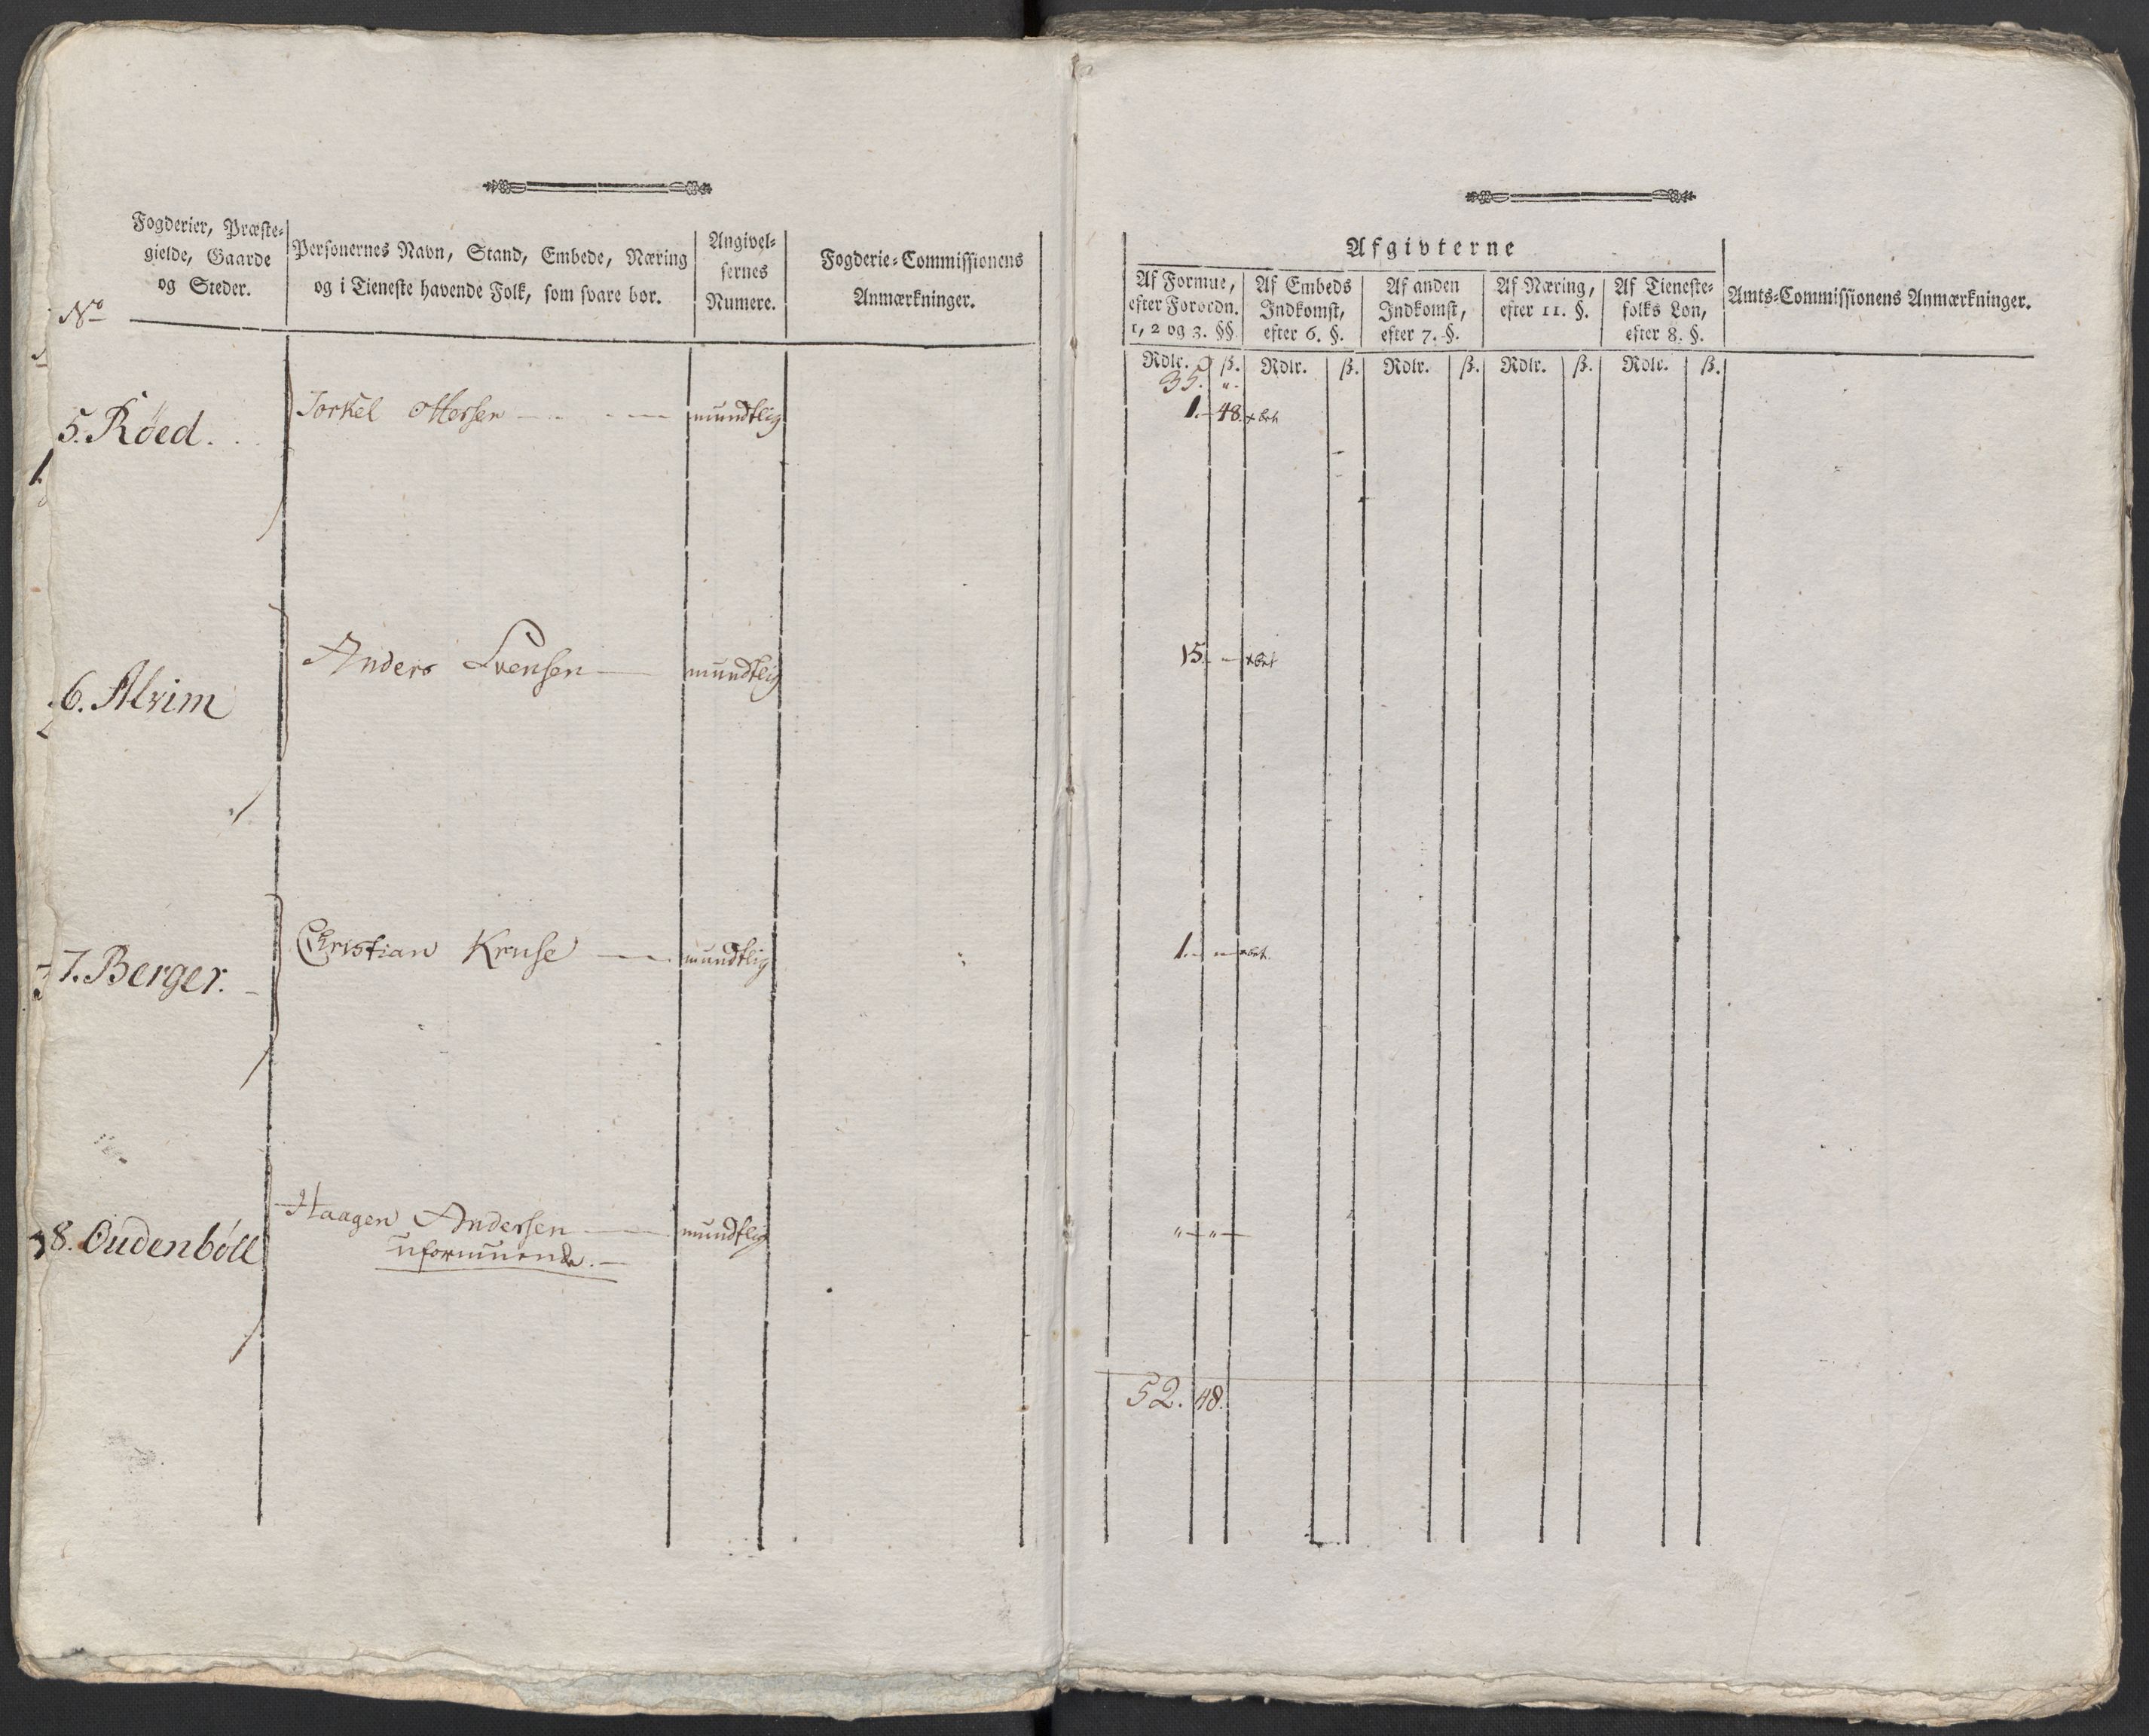 Fogderier, Præste-
gielde, Gaarde
og Steder.
No
Personernes Navn, Stand, Embede, Næring
og i Tieneste havende Folk, som svare bør.
Angivel-
sernes
Numere.
Fogderie-Commissionens
Anmærkninger.
5. Röed.
Torkel Ottersen
mundtlig
6. Alvim
Anders Svensen
mundtlig
7. Berger.
Christian Kruse
mundtlig
8. Oudenböll
Haagen Andersen
mundtlig
uformuende.
Afgivterne
Af Formue,
efter Forordn.
1, 2 og 3. §§.
Af Embeds
Indkomst,
efter 6. §.
Af anden
Indkomst,
efter 7. §.
Af Næring,
efter 11. §.
Af Tieneste-
folks Løn,
efter 8. §.
Amts-Commissionens Anmærkninger.
Rdlr. ß. Rdlr. ß. Rdlr. ß. Rdlr. ß. Rdlr. ß.
35. „-
1.- 48. x bet
15. - x bet
1. - „ - x bet.
„ - „ -
52. 48.